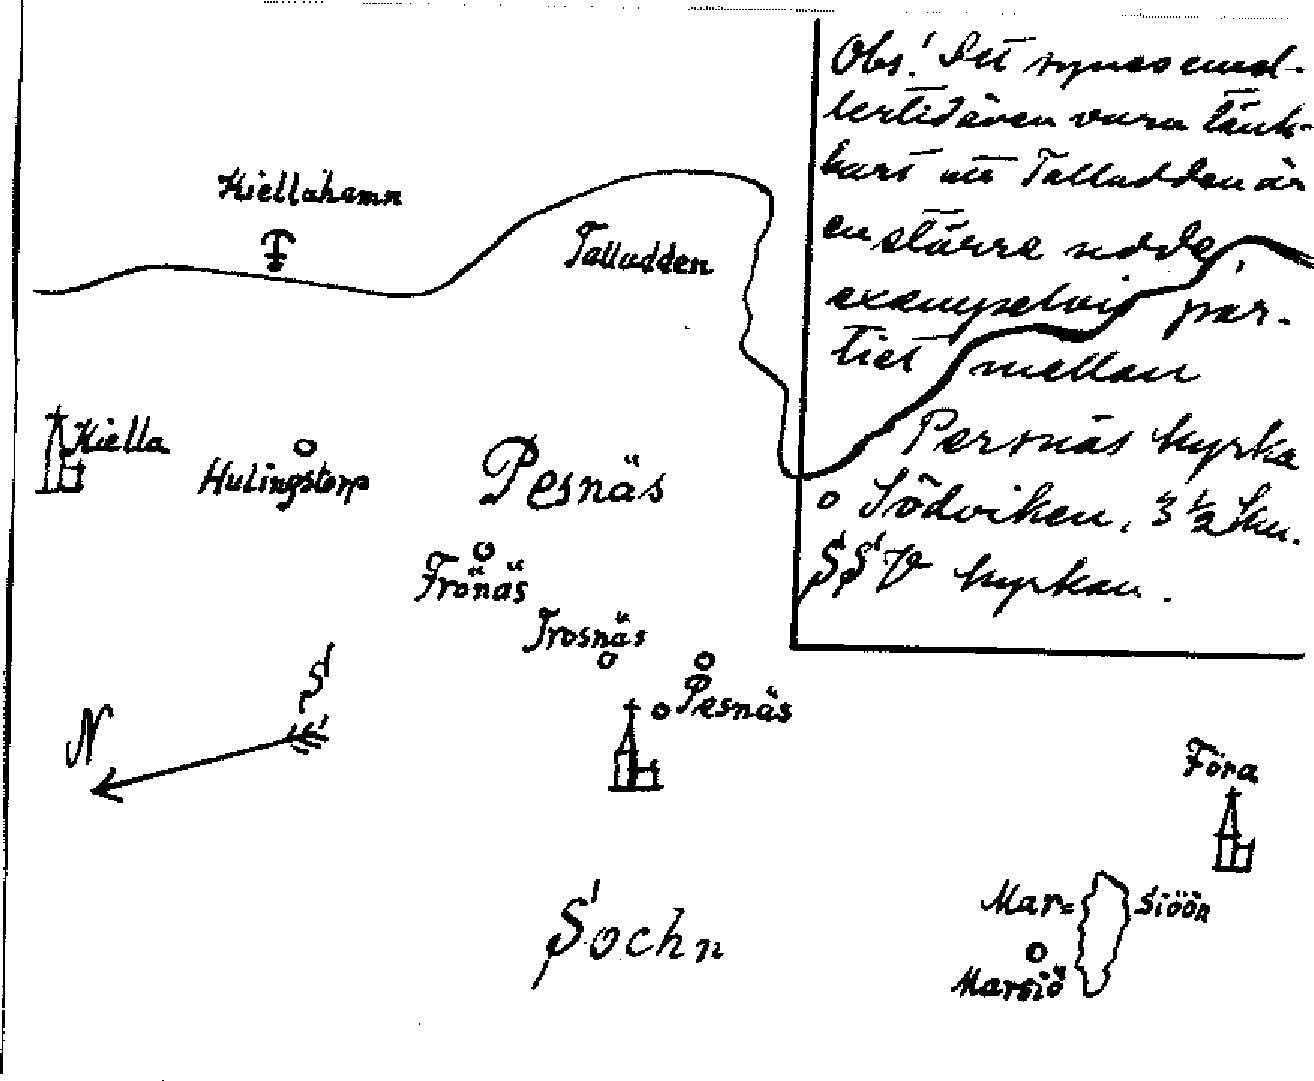 Obs! Det synes emel-
lertid även vara tänk-
bart att Talludden är
en större udde,
exempelvis par-
tiet mellan
Persnäs kyrka
o Södviken, 3 1/2 km.
SSV kyrkan.
Kiellahamn
Talludden
Kiella
Hulingstorp
Pesnäs
Frönäs
Trosnäs
Pesnäs
S
N
Föra
Sochn
Mar= siöön
Marsiö